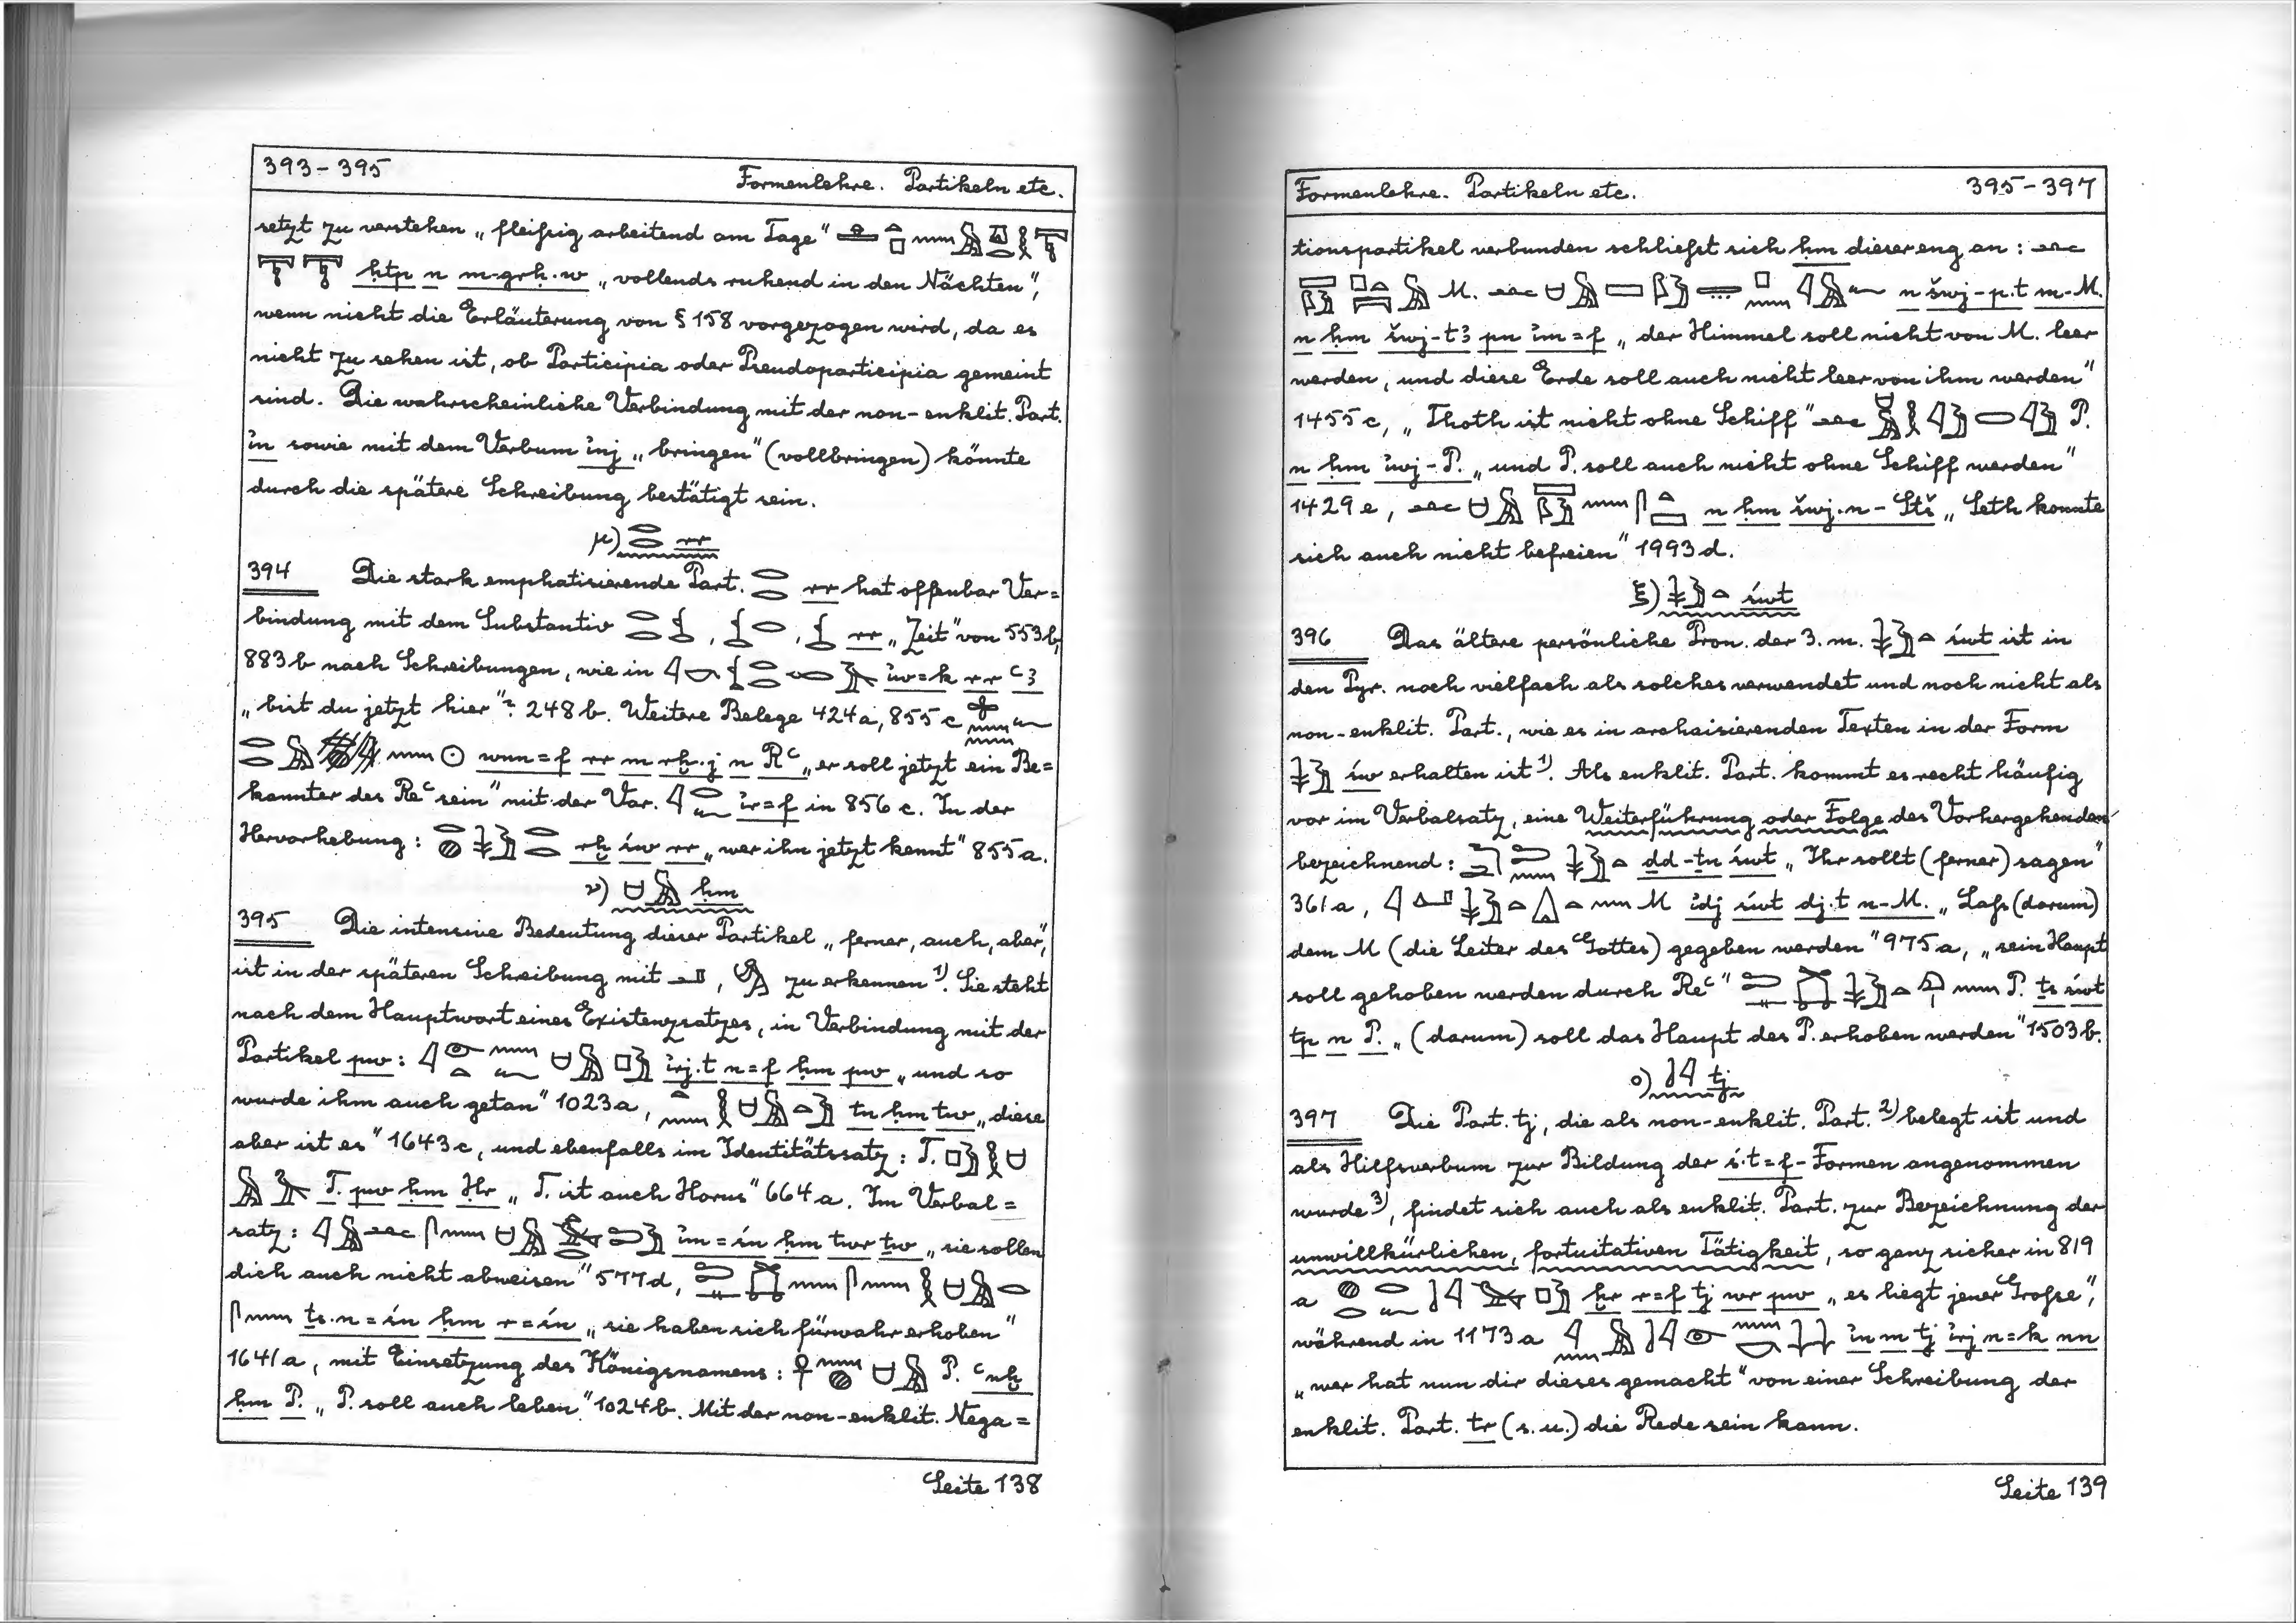 393-395 Formenlehre. Partikeln etc.
setzt zu verstehen „fleißig arbeitend am Tage"
ḥtp n m-grḥ.w „vollends ruhend in den Nächten",
wenn nicht die Erläuterung von § 158 vorgezogen wird, da es
nicht zu sehen ist, ob Participia oder Pseudoparticipia gemeint
sind. Die wahrscheinliche Verbindung mit der non-enklit. Part.
in sowie mit dem Verbum inj „bringen" (vollbringen) könnte
durch die spätere Schreibung bestätigt sein.
μ) rr
394 Die stark emphatisierende Part. rr hat offenbar Ver=
bindung mit dem Substantiv , , rr „Zeit" von 553b,
883b nach Schreibungen, wie in iw=k rr ꜥꜣ
„bist du jetzt hier"? 248b. Weitere Belege 424a, 855c
wnn=f rr m rḫ.j n Rꜥ „er soll jetzt ein Be=
kannter des Reꜥ sein" mit der Var. ir=f in 856c. In der
Hervorhebung: rḫ św rr „wer ihn jetzt kennt" 855a.
ν) ḥm
395 Die intensive Bedeutung dieser Partikel „ferner, auch, aber",
ist in der späteren Schreibung mit , zu erkennen 1). Sie steht
nach dem Hauptwort eines Existenzsatzes, in Verbindung mit der
Partikel pw: irj.t n=f ḥm pw „und so
wurde ihm auch getan" 1023a, tn ḥm tw „diese
aber ist es" 1643c, und ebenfalls im Identitätssatz: T.
T. pw ḥm Ḥr „T. ist auch Horus" 664a. Im Verbal=
satz: im=śn ḥm twr ṯw „sie sollen
dich auch nicht abweisen" 577d,
ṯs.n=śn ḥm r=śn „sie haben sich fürwahr erhoben"
1641a, mit Einsetzung des Königsnamens: P. ꜥnḫ
ḥm P. „P. soll auch leben" 1024b. Mit der non-enklit. Nega=
Seite 138
Formenlehre. Partikeln etc. 395-397
tionspartikel verbunden schließt sich ḥm dieser eng an:
M. n šwj-p.t m-M.
n ḥm šwj-tꜣ pn im=f „der Himmel soll nicht von M. leer
werden, und diese Erde soll auch nicht leer von ihm werden"
1455c, „Thoth ist nicht ohne Schiff" P.
n ḥm iwj-P. „und P. soll auch nicht ohne Schiff werden"
1429e, n ḥm šwj.n-Stš „Seth konnte
sich auch nicht befreien" 1993d.
ξ) śwt
396 Das ältere persönliche Pron. der 3. m. śwt ist in
den Pyr. noch vielfach als solches verwendet und noch nicht als
non-enklit. Part., wie es in archaisierenden Texten in der Form
św erhalten ist 1). Als enklit. Part. kommt es recht häufig
vor im Verbalsatz, eine Weiterführung oder Folge des Vorhergehenden
bezeichnend: ḏd-ṯn śwt „Ihr sollt (ferner) sagen"
361a, M idj śwt dj.t n-M. „Laß (darum)
dem M (die Leiter des Gottes) gegeben werden" 975a, „sein Haupt
soll gehoben werden durch Reꜥ" P. ṯs śwt
tp n P. „(darum) soll das Haupt des P. erhoben werden" 1503b.
ο) tj
397 Die Part. tj, die als non-enklit. Part. 2) belegt ist und
als Hilfsverbum zur Bildung der ś.t=f-Formen angenommen
wurde 3), findet sich auch als enklit. Part. zur Bezeichnung der
unwillkürlichen, fortuitativen Tätigkeit, so ganz sicher in 819
a ḫr r=f tj wr pw „es liegt jener Große",
während in 1173a in m tj irj n=k nn
„wer hat nun dir dieses gemacht" von einer Schreibung der
enklit. Part. tr (s.u.) die Rede sein kann.
Seite 139